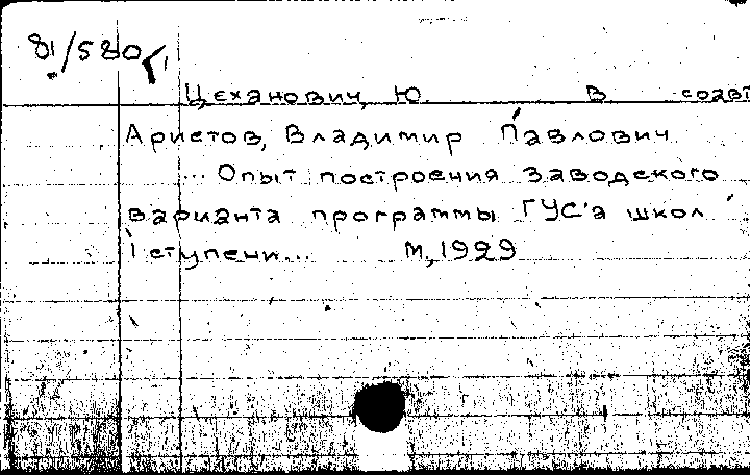 81/580
Цеханович, Ю. В соавт
Аристов, Владимир Павлович
... Опыт построения заводского
варианта программы ГУС'а школ
I ступени... М, 1929